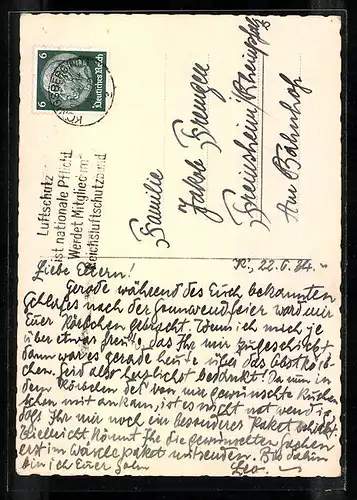 6 Deutsches Reich 6
Luftschutz
ist nationale Pflicht
Werdet Mitglied im
Reichsluftschutzbund
Familie
Jakob
Freinsheim/Rheinpfalz
Am Bahnhof
K., 22.6.34.
Liebe Eltern!
Gerade während des Euch bekannten
Schlafes nach der Sonnwendfeier ward mir
Euer Körbchen gebracht. Wenn ich mich je
über etwas freute, das Ihr mir zugeschickt
dann war es gerade heute über das Obstkörb-
chen. Seid also herzlichst bedankt! Da nun in
dem Körbchen der von mir gewünschte Kuchen
schon mit ankam, ist es nicht notwendig
daß Ihr mir noch ein besonderes Paket schickt.
Vielleicht könnt Ihr die gewünschten Sachen
erst im Waschepaket mitsenden. Bis dahin
bin ich Euer Sohn
Leo.